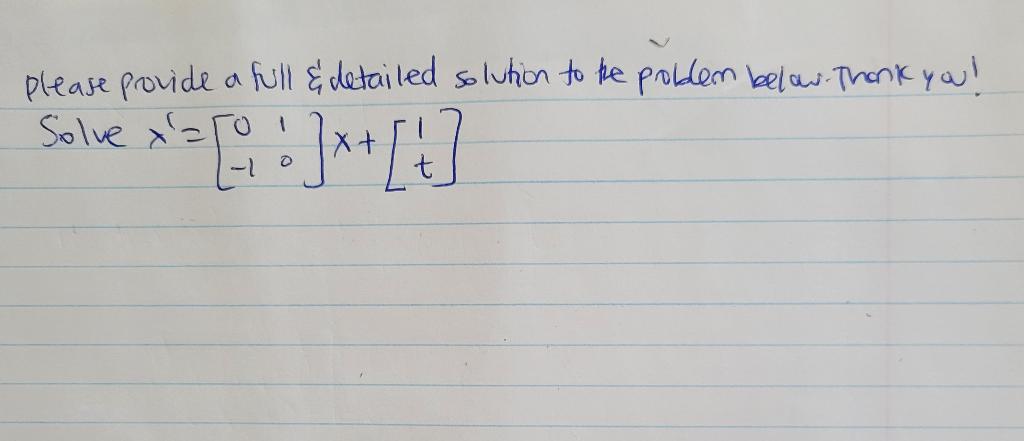 please provide a full & detailed solution to the problem below. Thank you!
Solve x' = [0 1
-1 0] x + [1
t]